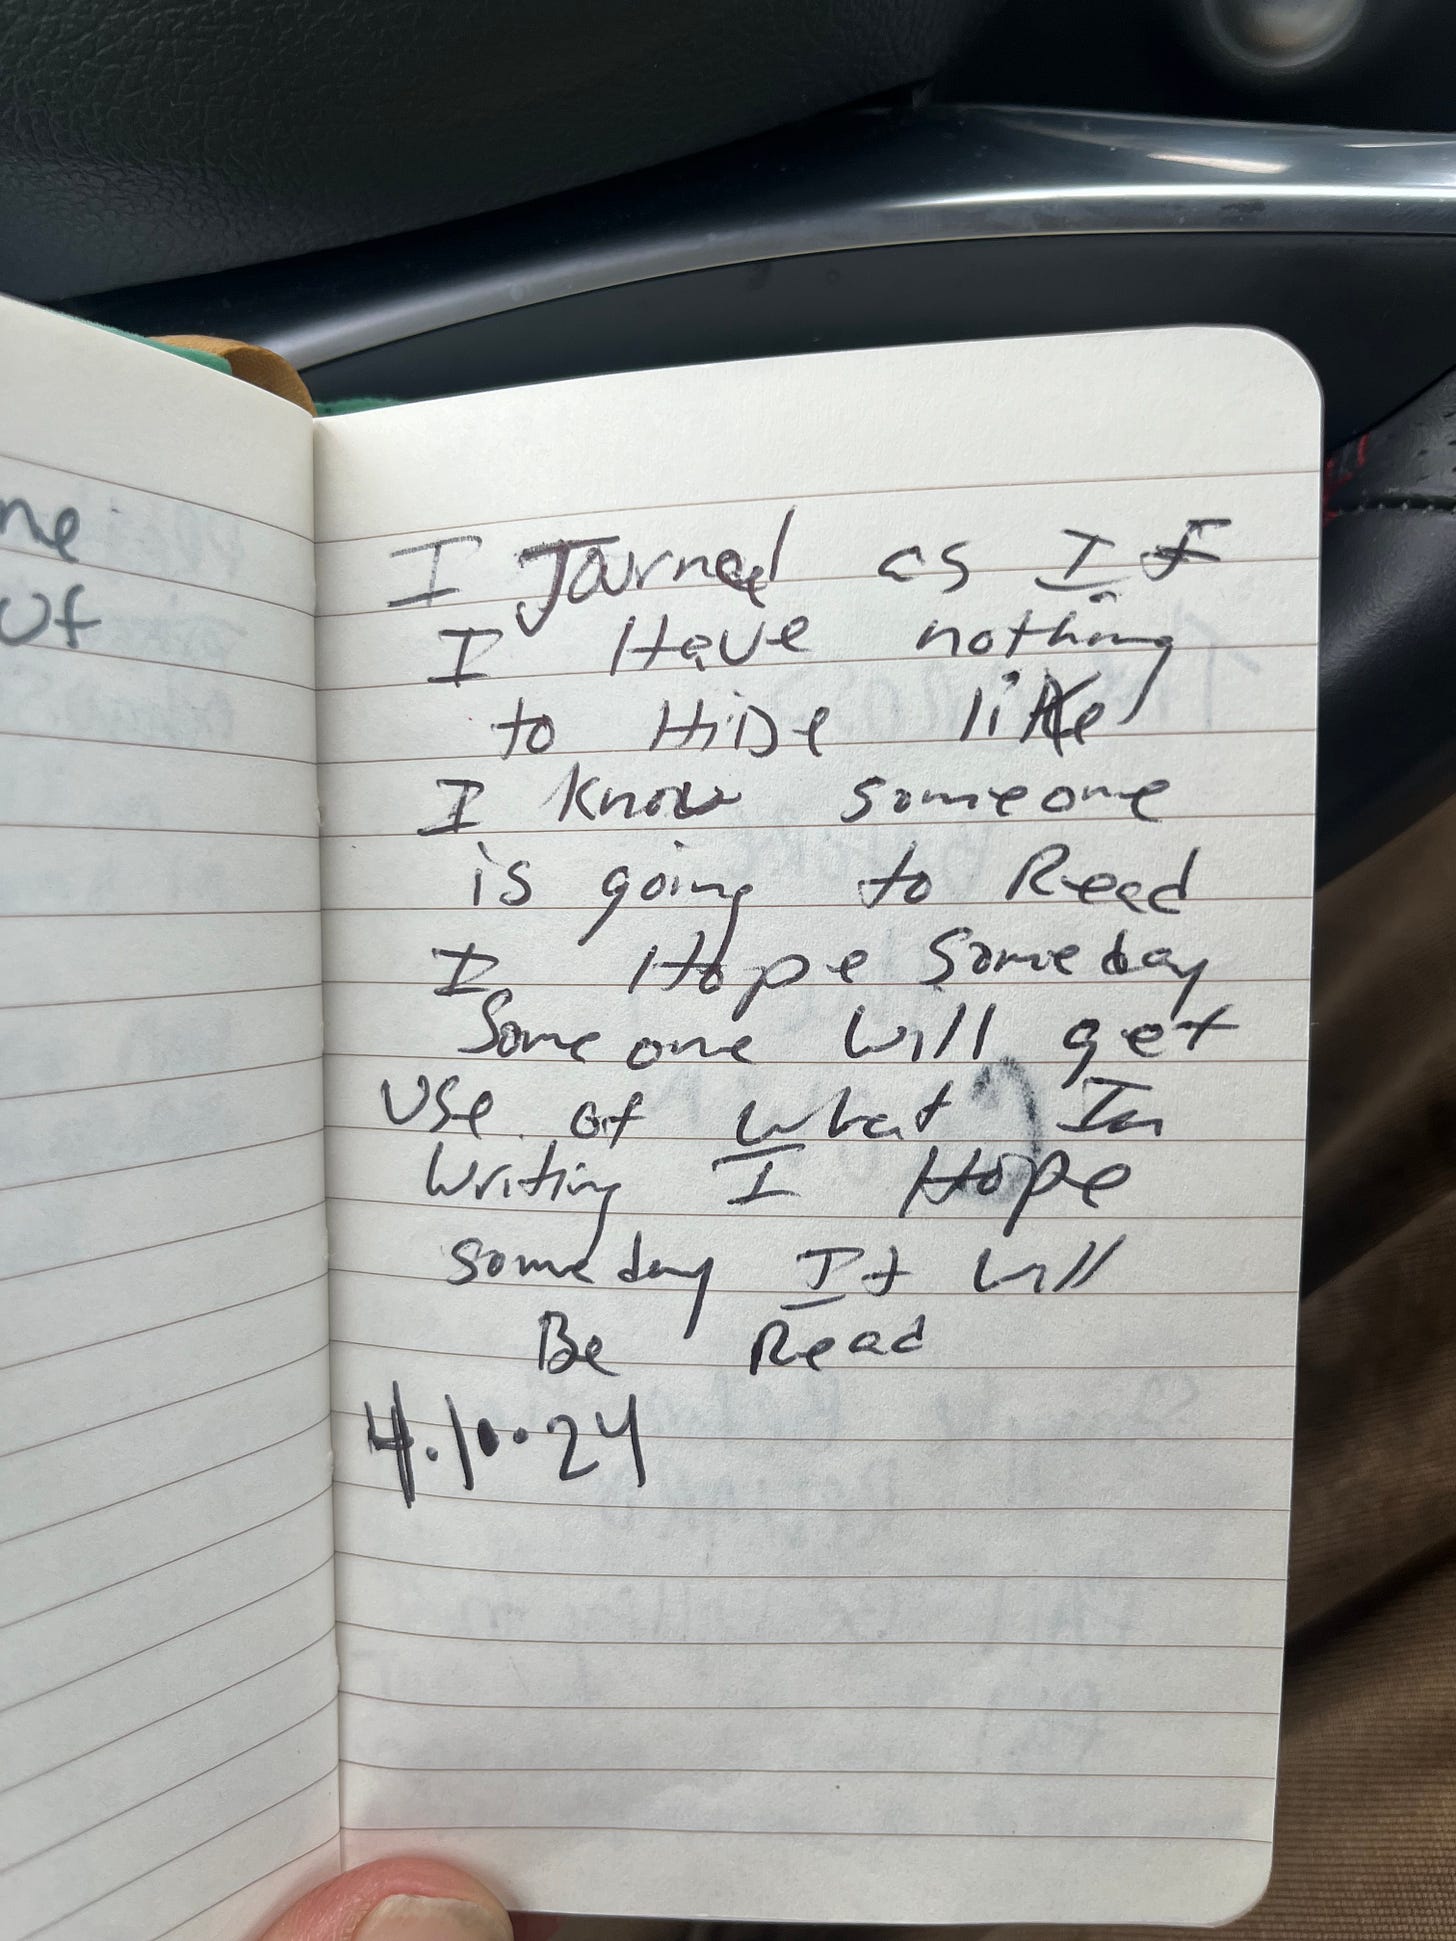 ne
of
I Journal as If
I Have nothing
to HiDe like
I know someone
is going to Read
I Hope someday
Someone will get
Use of what Im
Writing I Hope
someday It will
Be Read
4.10.24